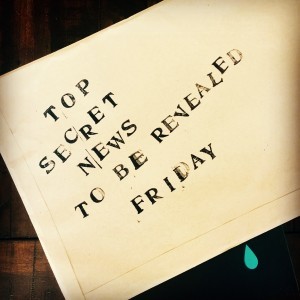 TOP
SECRET
NEWS
TO BE REVEALED
FRIDAY